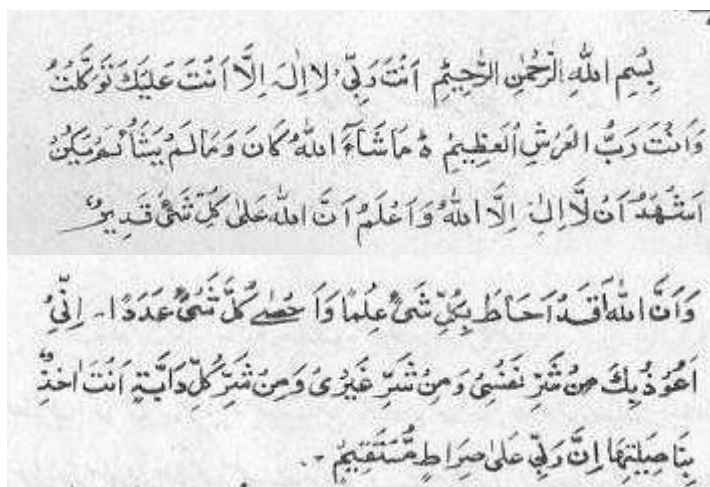 بِسْمِ اللهِ الرَّحْمٰنِ الرَّحِيْمِ اَنْتَ رَبِّيْ لَا اِلٰہَ اِلَّا اَنْتَ عَلَيْكَ تَوَكَّلْتُ
وَاَنْتَ رَبُّ الْعَرْشِ الْعَظِيْمِ ہ مَا شَآءَ اللهُ كَانَ وَمَا لَمْ يَشَأْ لَمْ يَكُنْ
اَشْهَدُ اَنْ لَّا اِلٰہَ اِلَّا اللهُ وَاَعْلَمُ اَنَّ اللهَ عَلٰى كُلِّ شَیْءٍ قَدِيْرٌ
وَاَنَّ اللهَ قَدْ اَحَاطَ بِكُلِّ شَیْءٍ عِلْمًا وَاَحْصٰے كُلَّ شَیْءٍ عَدَدًا۔ اِنِّیْ
اَعُوْذُ بِكَ مِنْ شَرِّ نَفْسِیْ وَمِنْ شَرِّ غَيْرِیْ وَمِنْ شَرِّ كُلِّ دَآبَّةٍ اَنْتَ اٰخِذٌ
بِنَاصِيَتِهَا اِنَّ رَبِّیْ عَلٰى صِرَاطٍ مُّسْتَقِيْمٍ ۔